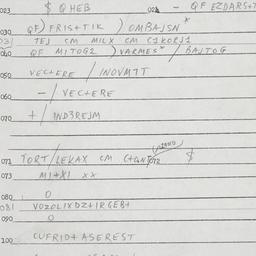 023 $ QHEB 024 - QF EZDARS+T
030 QF) FRIS+TIK ) OMBAJSN*
031 TEJ CM MILX CM C1KORJ1
040 QF MITOG2 ) VARMES* / BAJTOG
050 VEC+ERE / INOVMTT
060 - / VEC+ERE
070 + / IND3REJM
071 TORT / LEKAX CM 072 $
073 MI+XI xx
080 0
081 VOZOLIXDZ+IRGEB+
090 0
100 CUFRID+ASEREST